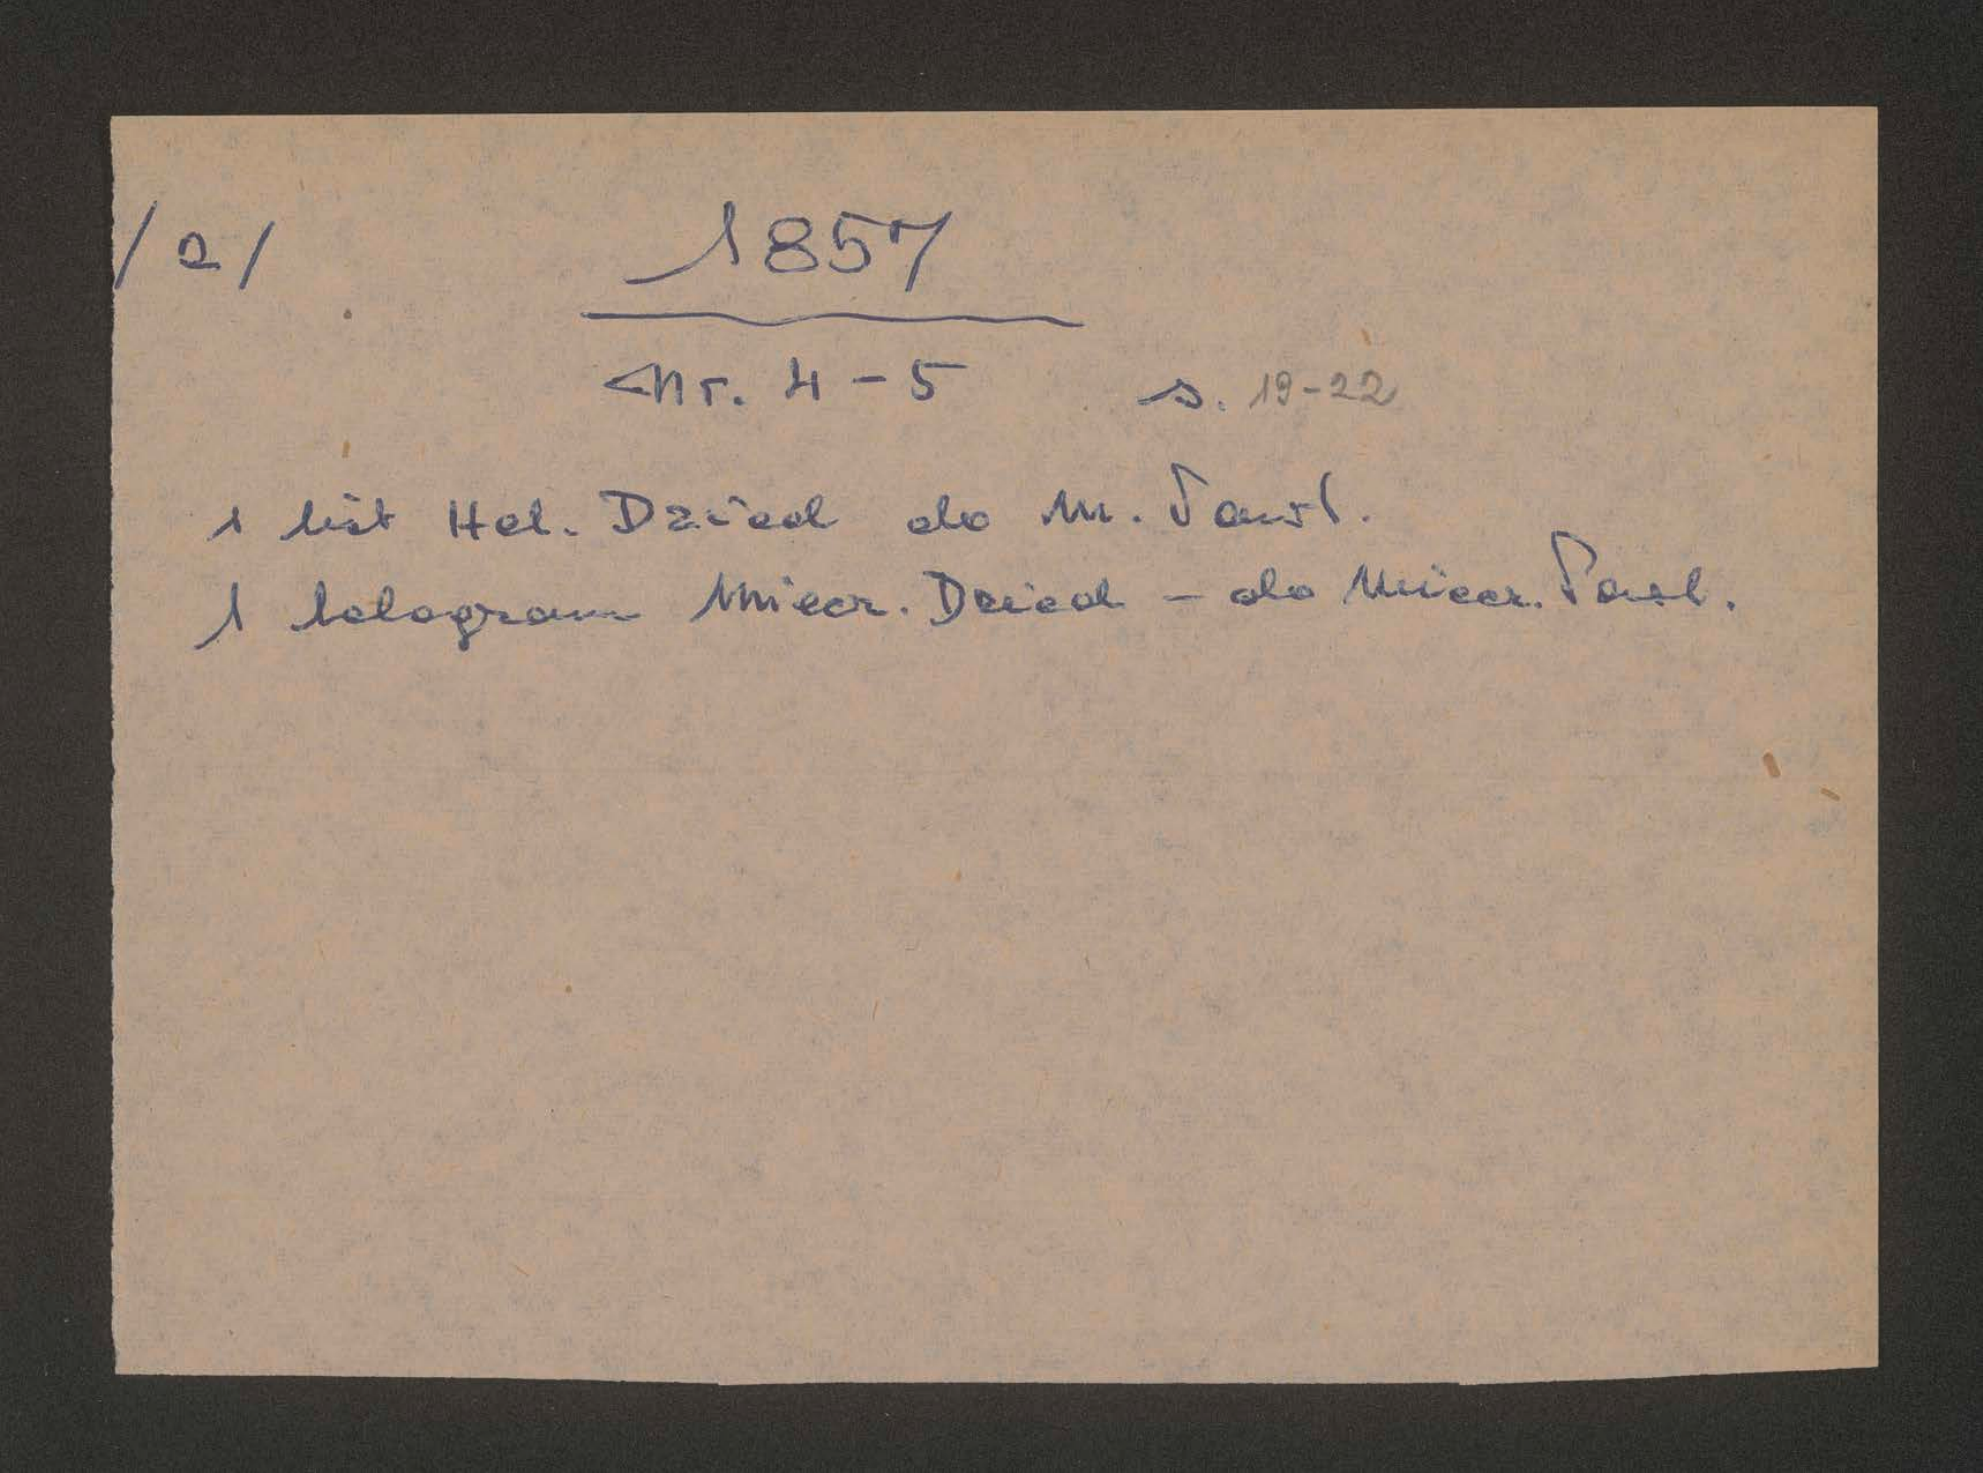 /2/ 1857
Nr. 4-5 s. 19-22
1 list Hel. Dzied do M. Pawl.
1 telegram Miecz. Dzied - do Miecz. Pawl.